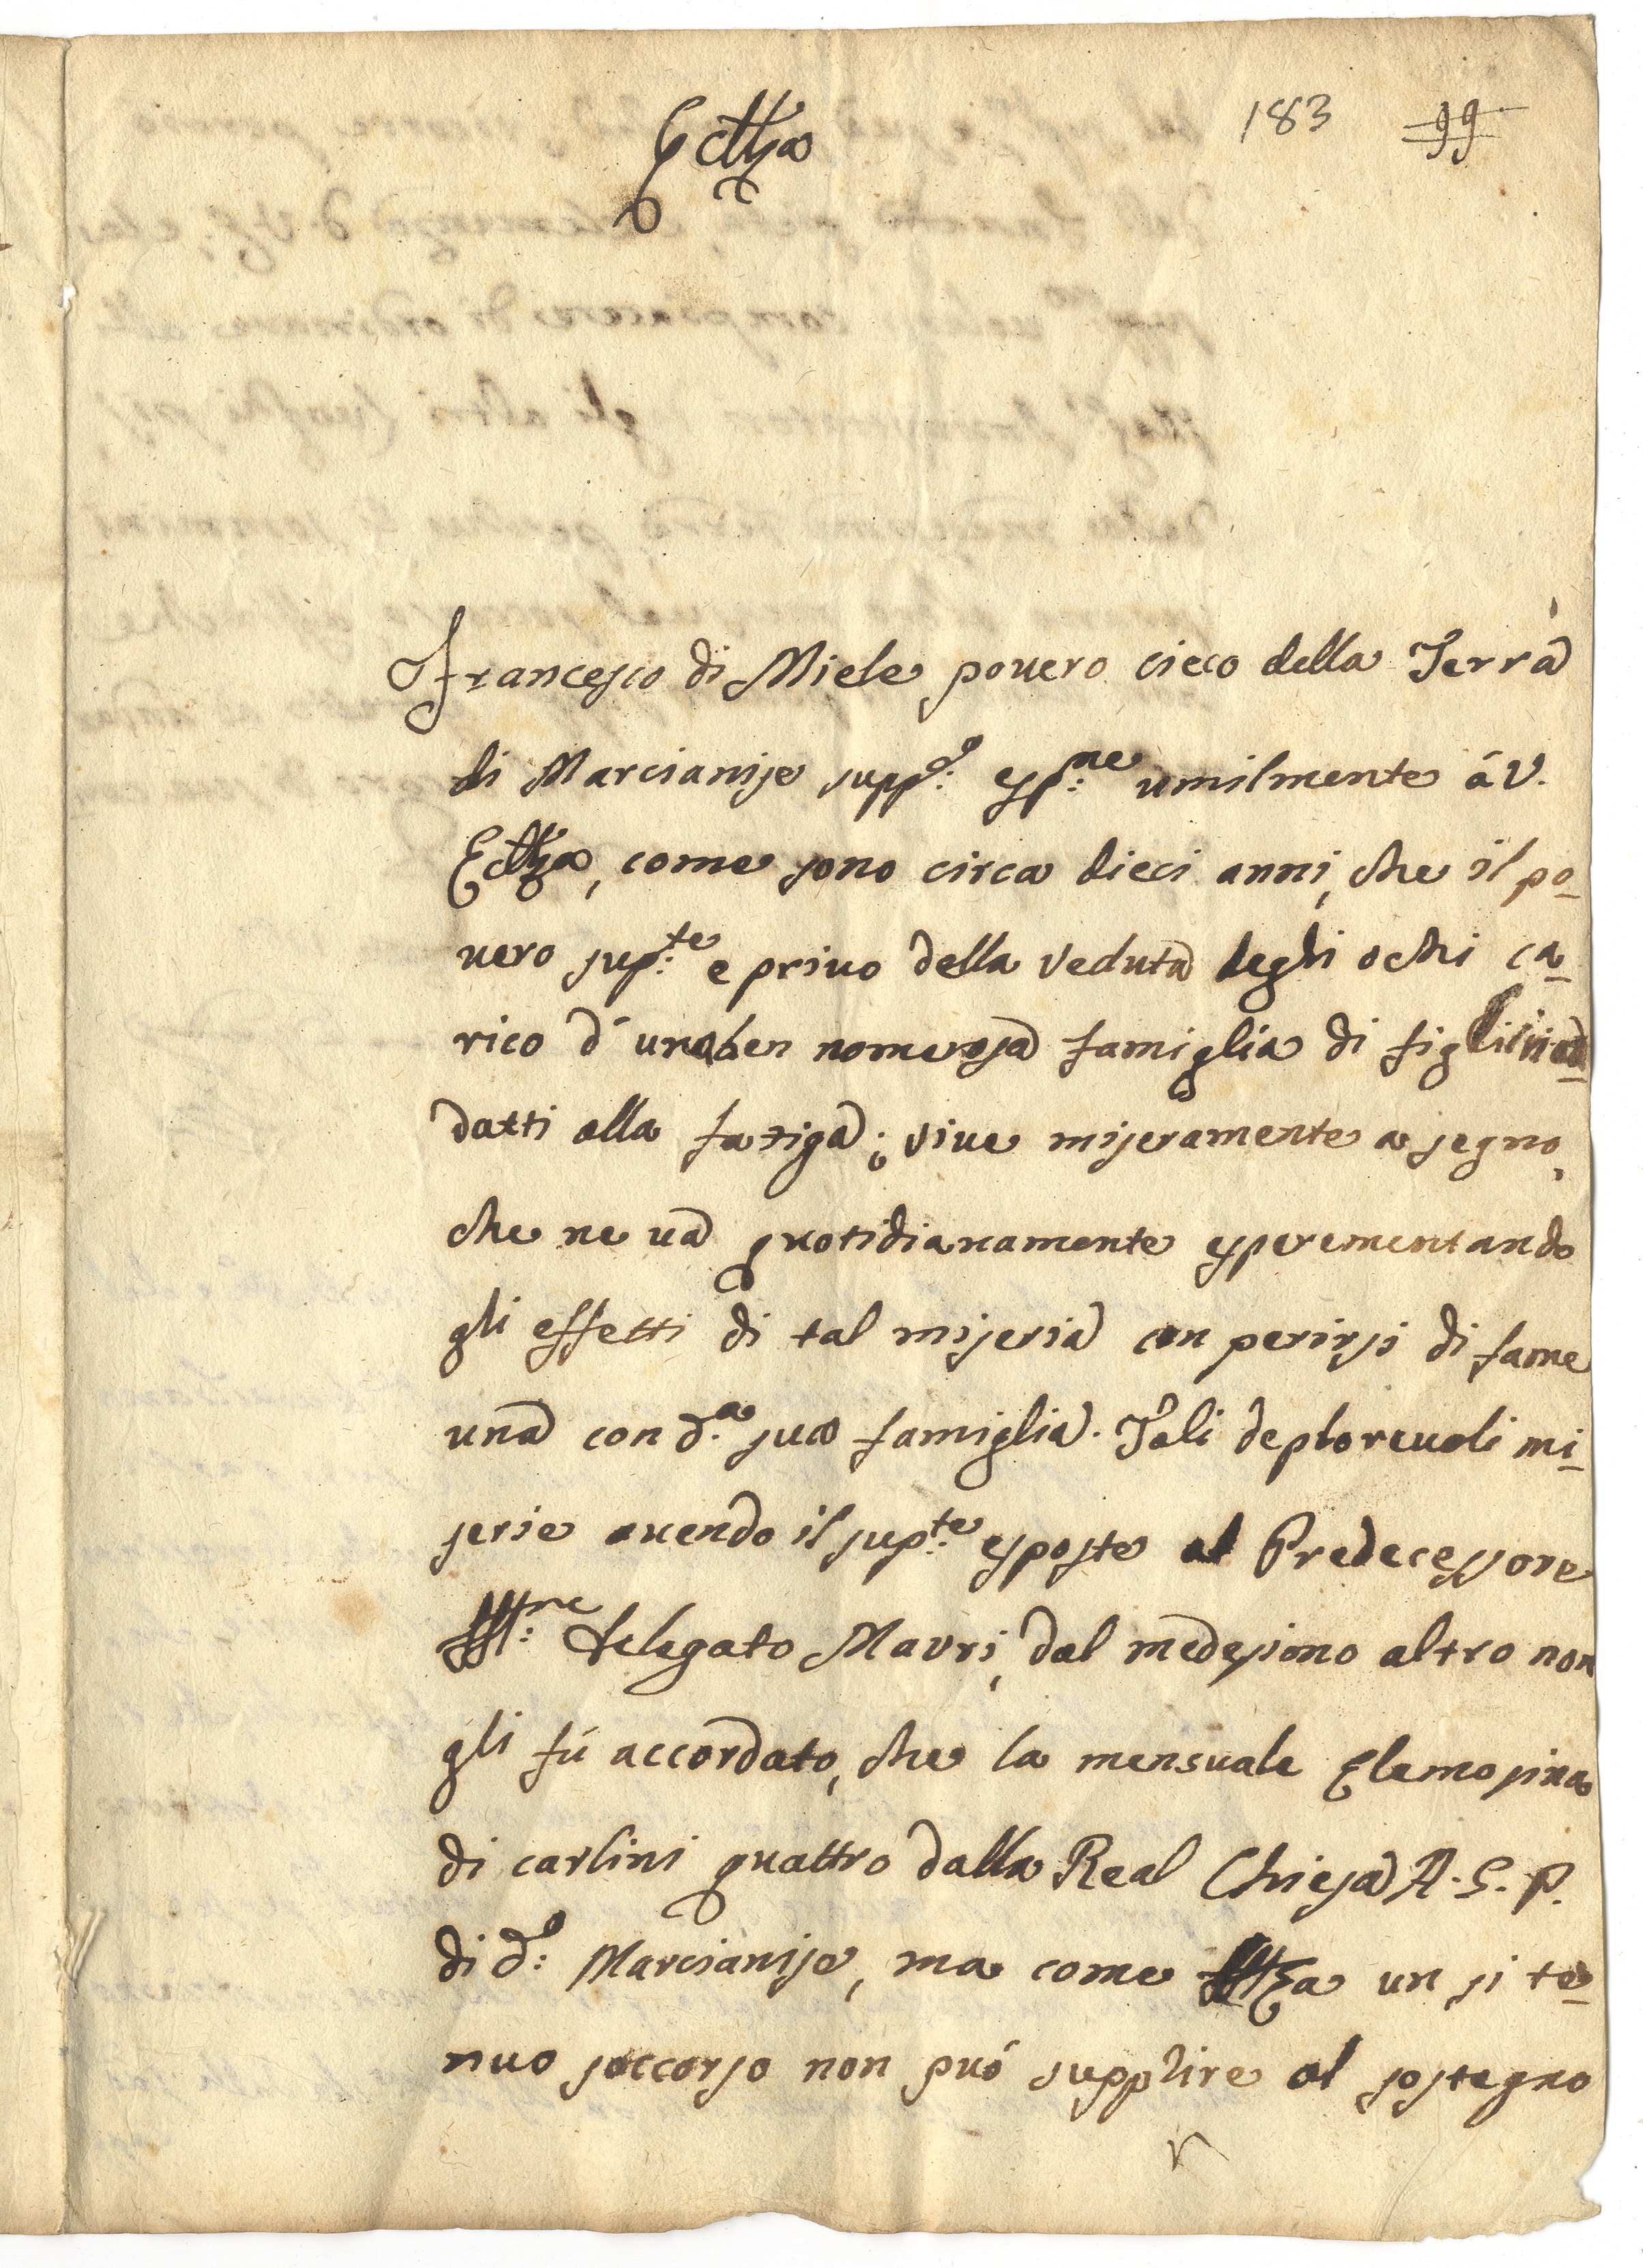 183 99
Ecc.za
Francesco di Miele pouero cieco della Terra
di Marcianise supp.o esp.ne umilmente à V.
Ecc.za, come sono circa dieci anni, che il po-
uero sup.te e priuo della veduta degli ochi ca-
rico d'una ben nomerosa famiglia di figli inad-
datti alla fatiga; viue miseramente a segno,
che ne và quotidianamente esperementando
gli effetti di tal miseria con perirsi di fame
una con d.a sua famiglia. Tali deploreuoli mi-
serie auendo il sup.te esposte al Predecessore
Ill.re delegato Mauri, dal medesimo altro non
gli fù accordato, che la mensuale Elemosina
di carlini quattro dalla Real Chiesa A. G. P.
di d.o Marcianise, ma come un si te-
nuo soccorso non può supplire al sostegno